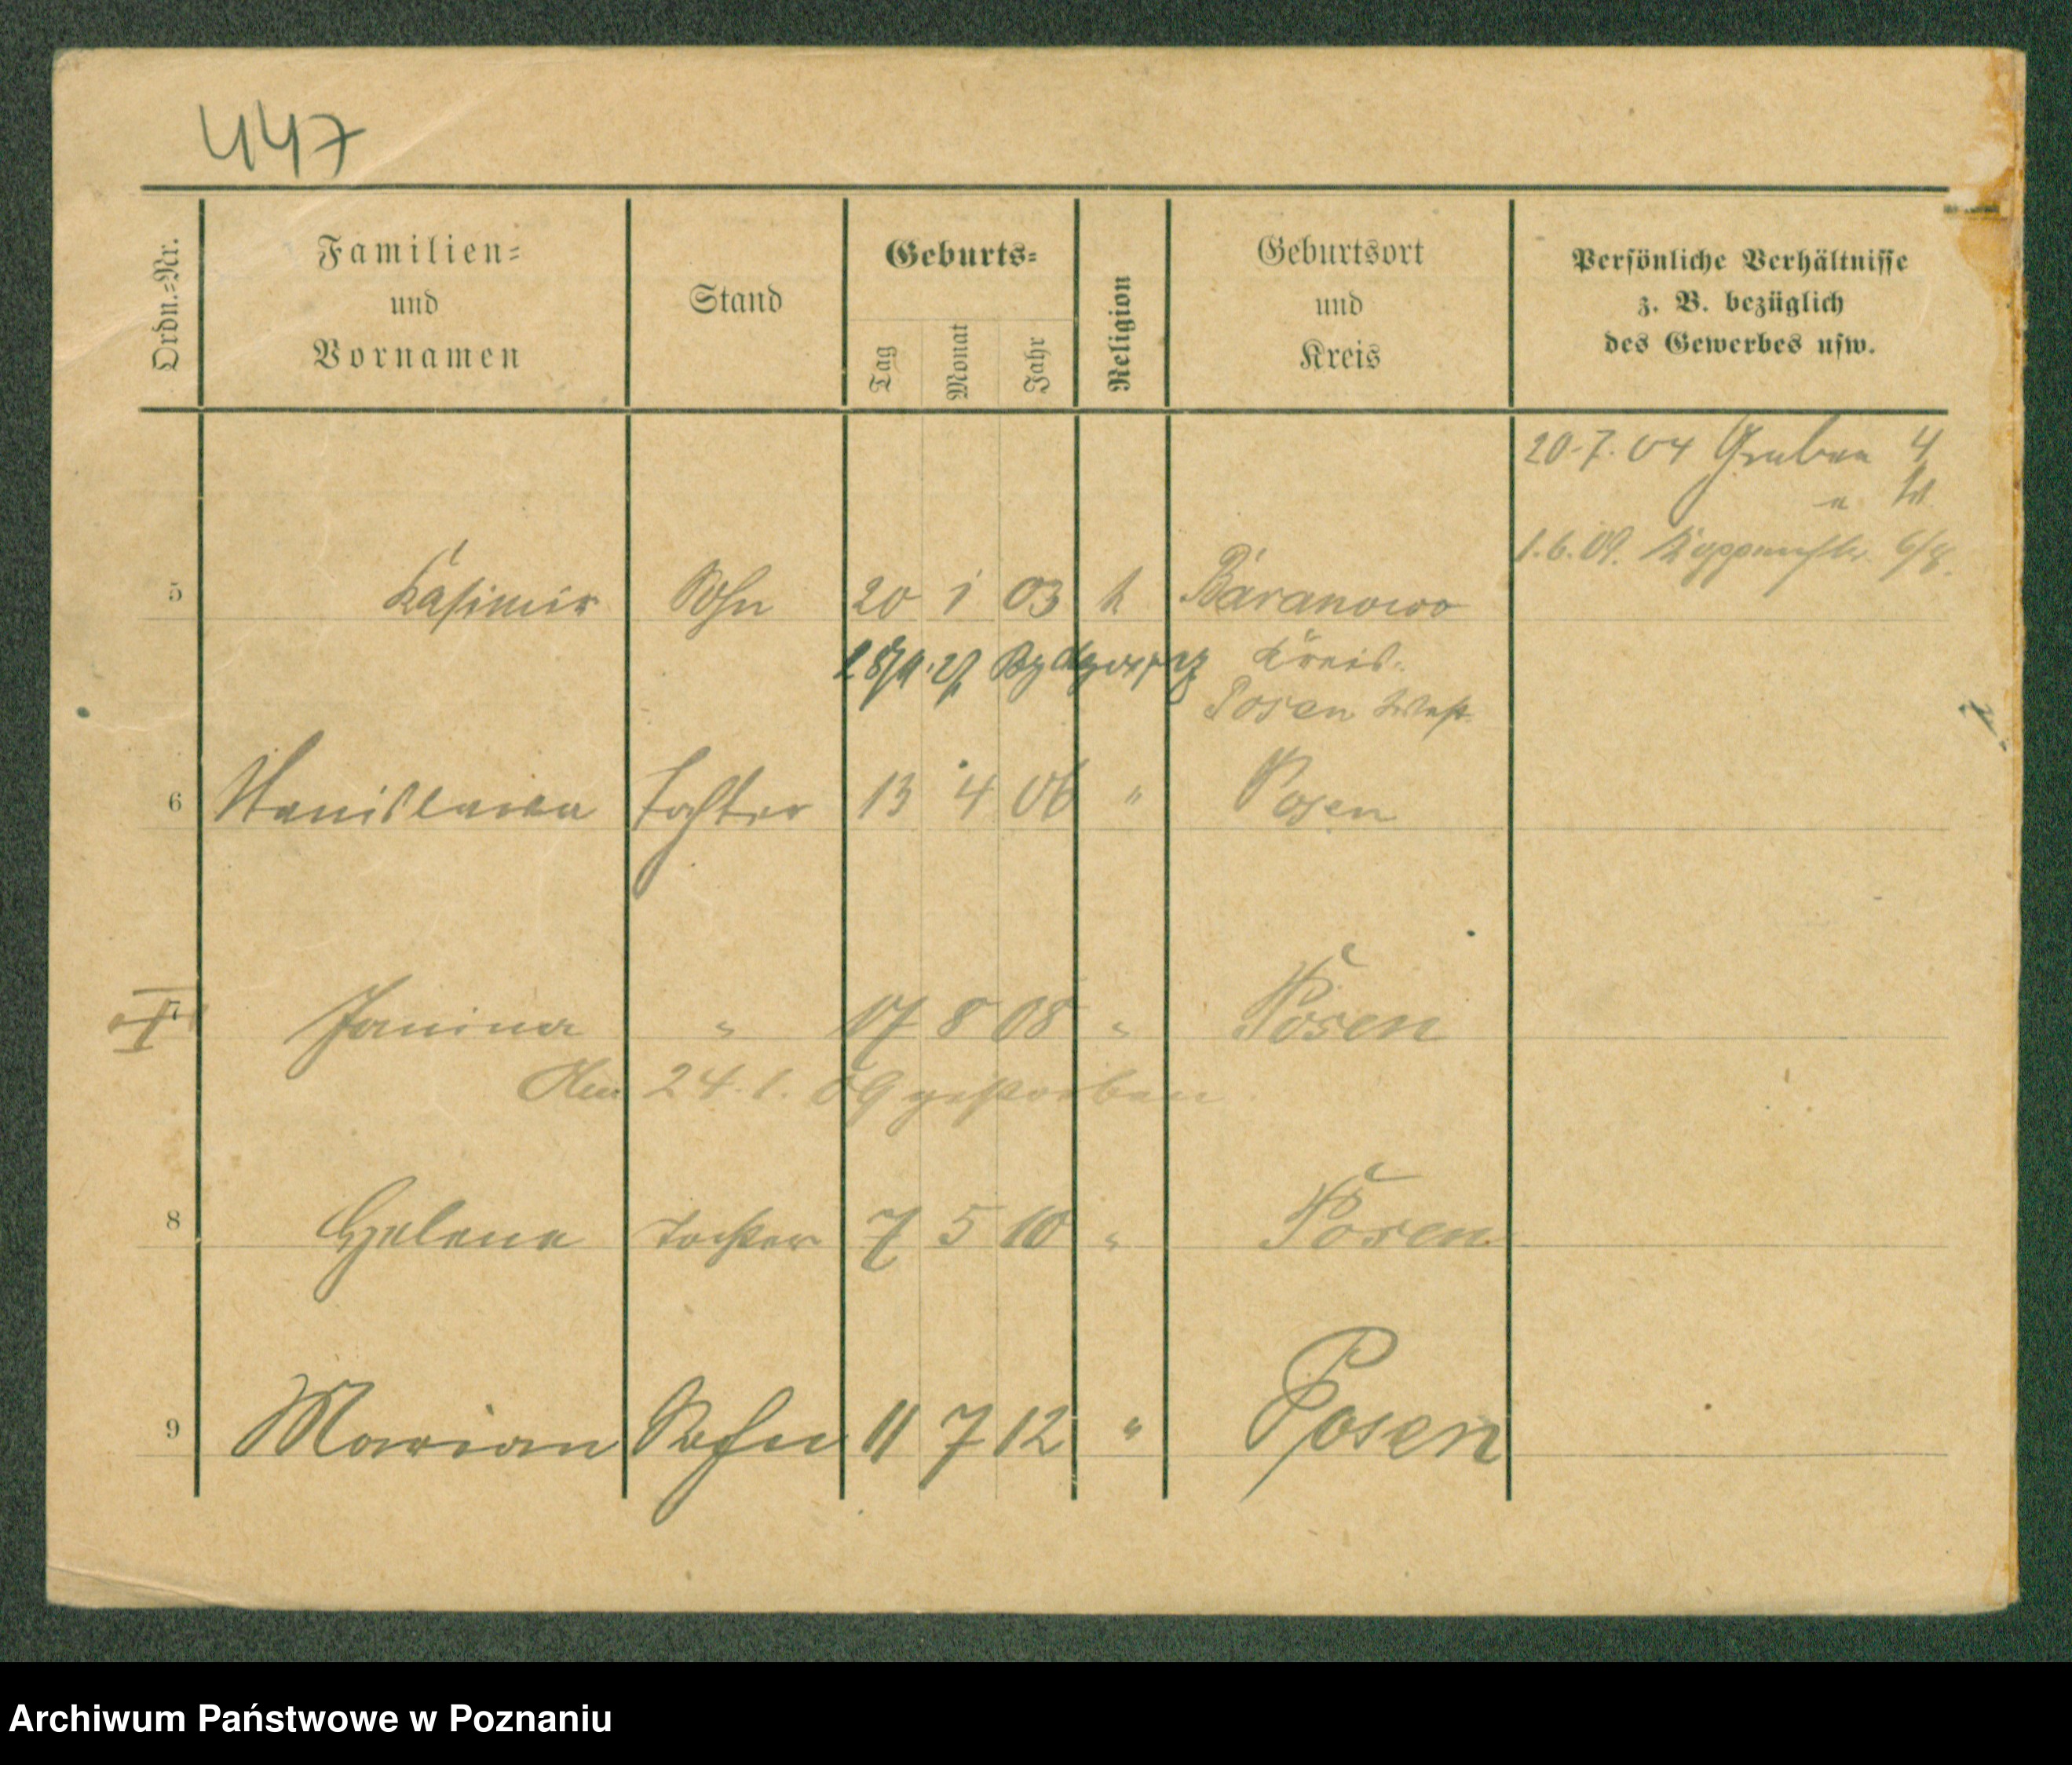 447
Ordn.=Nr.
Familien=
und
Vornamen
Stand
Geburts=
Tag
Monat
Jahr
Religion
Geburtsort
und
Kreis
Persönliche Verhältnisse
z. B. bezüglich
des Gewerbes usw.
20.7.04 Graben 4
1.6.09. 6/8.
5 Kasimir Sohn 20 1 03 k Baranowo
Bydgoszcz Kreis
Posen West
6 Stanislawa Tochter 13 4 06 " Posen
7 Janina " 17 8 08 " Posen
Am 24.1.09 gestorben
8 Helena Tochter 7 5 10 " Posen
9 Marian Sohn 11 7 12 " Posen
Archiwum Państwowe w Poznaniu